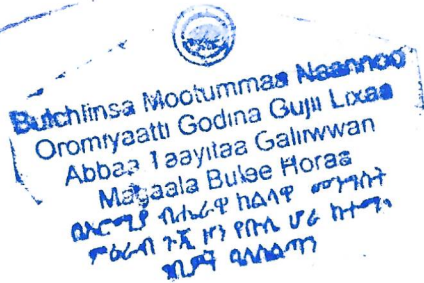 Bulchiinsa Mootummaa Naannoo
Oromiyaatti Godina Gujii Lixaa
Abbaa Taayitaa Galiiwwan
Magaala Bulee Horaa
በኦሮሚያ ብሔራዊ ክልላዊ መንግስት
ምዕራብ ጉጂ ዞን የቡሌ ሆራ ከተማ
ገቢዎች ባለስልጣን